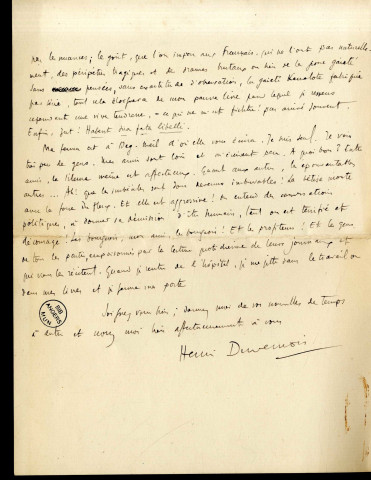 les nuances ; le goût, que l'on impose aux Français qui ne l'ont pas naturelle-
ment, des péripéties tragiques et de drames brutaux ou bien de la grosse gaieté
sans pensées, sans exactitude d'observation, la gaieté
par là, tout cela éloignera de mon pauvre livre pour lequel je
cependant une vive tendresse, ce qui ne m'est peut-être pas arrivé souvent.
Enfin, zut ! Habent sua fata libelli.
Ma femme est à Beg-Meil d'où elle vous écrira. Je suis seul. Je vois
très peu de gens. Mes amis sont loin et m'écrivent peu. A quoi bon ? Entre
amis, le silence même est affectueux. Quant aux autres, épouvantables
autres... Ah ! que les imbéciles sont donc devenus imbuvables ! La bêtise monte
avec la force du fleuve. Et elle est aggressive ! On entend des conversations
politiques, à donner sa démission d'être humain, tant on est terrifié et
découragé. Les bourgeois, mon ami, les bourgeois ! Et les profiteurs ! Et les gens
empoisonnés par la lecture quotidienne de leurs journaux et
qui vous les récitent ! Quand je rentre de l'hôpital, je me jette dans le travail ou
dans mes livres et je ferme ma porte.
Soignez-vous bien ; donnez-moi de vos nouvelles de temps
à autre et croyez-moi bien affectueusement à vous
Henri Duvernois
BIB
ANGERS
MUN